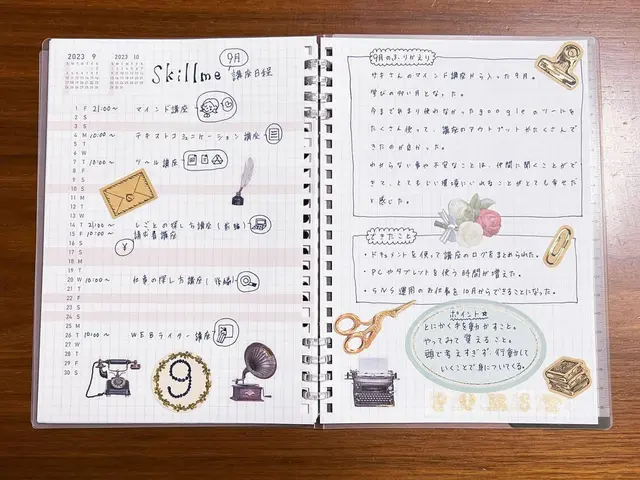 2023 9
2023 10
Skillme
9月
講座日程
1 F 21:00〜 マインド講座
2 S
3 S
4 M 10:00〜 テキストコミュニケーション講座
5 T
6 W
7 T 10:00〜 ツール講座
8 F
9 S
10 S
11 M
12 T
13 W
14 T 21:00〜 しごとの探し方講座(前編)
15 F 10:00〜 請求書講座
16 S
¥
17 S
18 M
19 T
20 W 10:00〜 仕事の探し方講座(後編)
21 T
22 F
23 S
24 S
25 M
26 T 10:00〜 WEBライター講座
27 W
28 T
29 F
30 S
9
9月のふりかえり
サキさんのマインド講座から入った9月。
学びの多い月となった。
今まであまり使わなかったgoogleのツールを
たくさん使って、講座のアウトプットがたくさんで
きたのが良かった。
わからない事や不安なことは、仲間に聞くことがで
きて、とてもいい環境にいれることがとても幸せだ
と感じた。
できたこと
・ドキュメントを使って講座のログをまとめられた。
・PCやタブレットを使う時間が増えた。
・SNS運用のお仕事を10月からできることになった。
ポイント☆
とにかく手を動かすこと。
やってみて覚えること。
頭で考えすぎず、行動して
いくことで身についてくる。